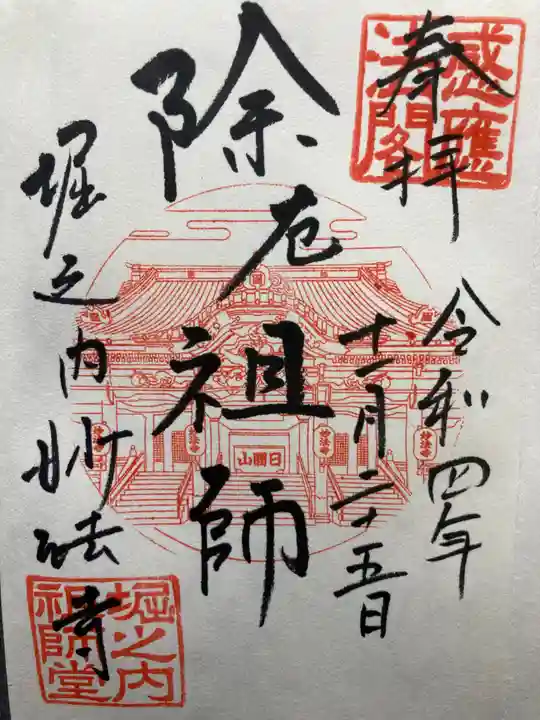 奉拝
令和四年
十一月二十五日
除厄
祖師
堀之内妙法寺
感應
法閣
日圓山
妙法寺
妙法寺
堀之内
祖師堂